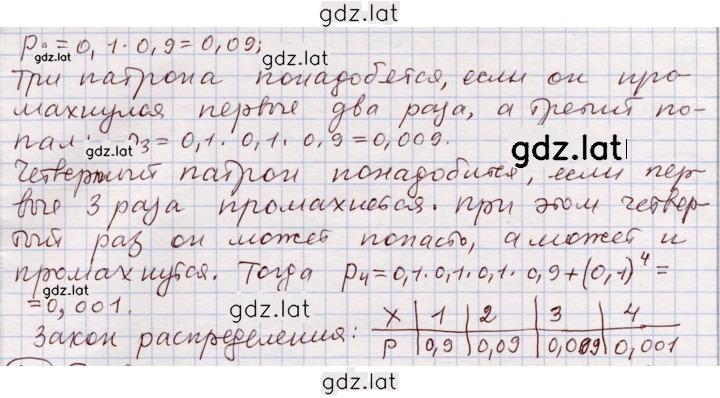 gdz.lat
= 0,1 · 0,9 = 0,09;
Три патрона понадобятся, если он про-
gdz.lat
махнулся первые два раза, а третий по-
пал: = 0,1 · 0,1 · 0,9 = 0,009.
gdz.lat
gdz.lat
Четвертый патрон понадобится, если пер-
вые 3 раза промахнется. При этом четвер-
тый раз он может попасть, а может и
gdz.lat
промахнутся. Тогда p₄ = 0,1 · 0,1 · 0,1 · 0,9 + (0,1)⁴ =
= 0,001.
gdz.lat
Закон распределения: X 1 2 3 4
P 0,9 0,09 0,009 0,001
gdz.lat